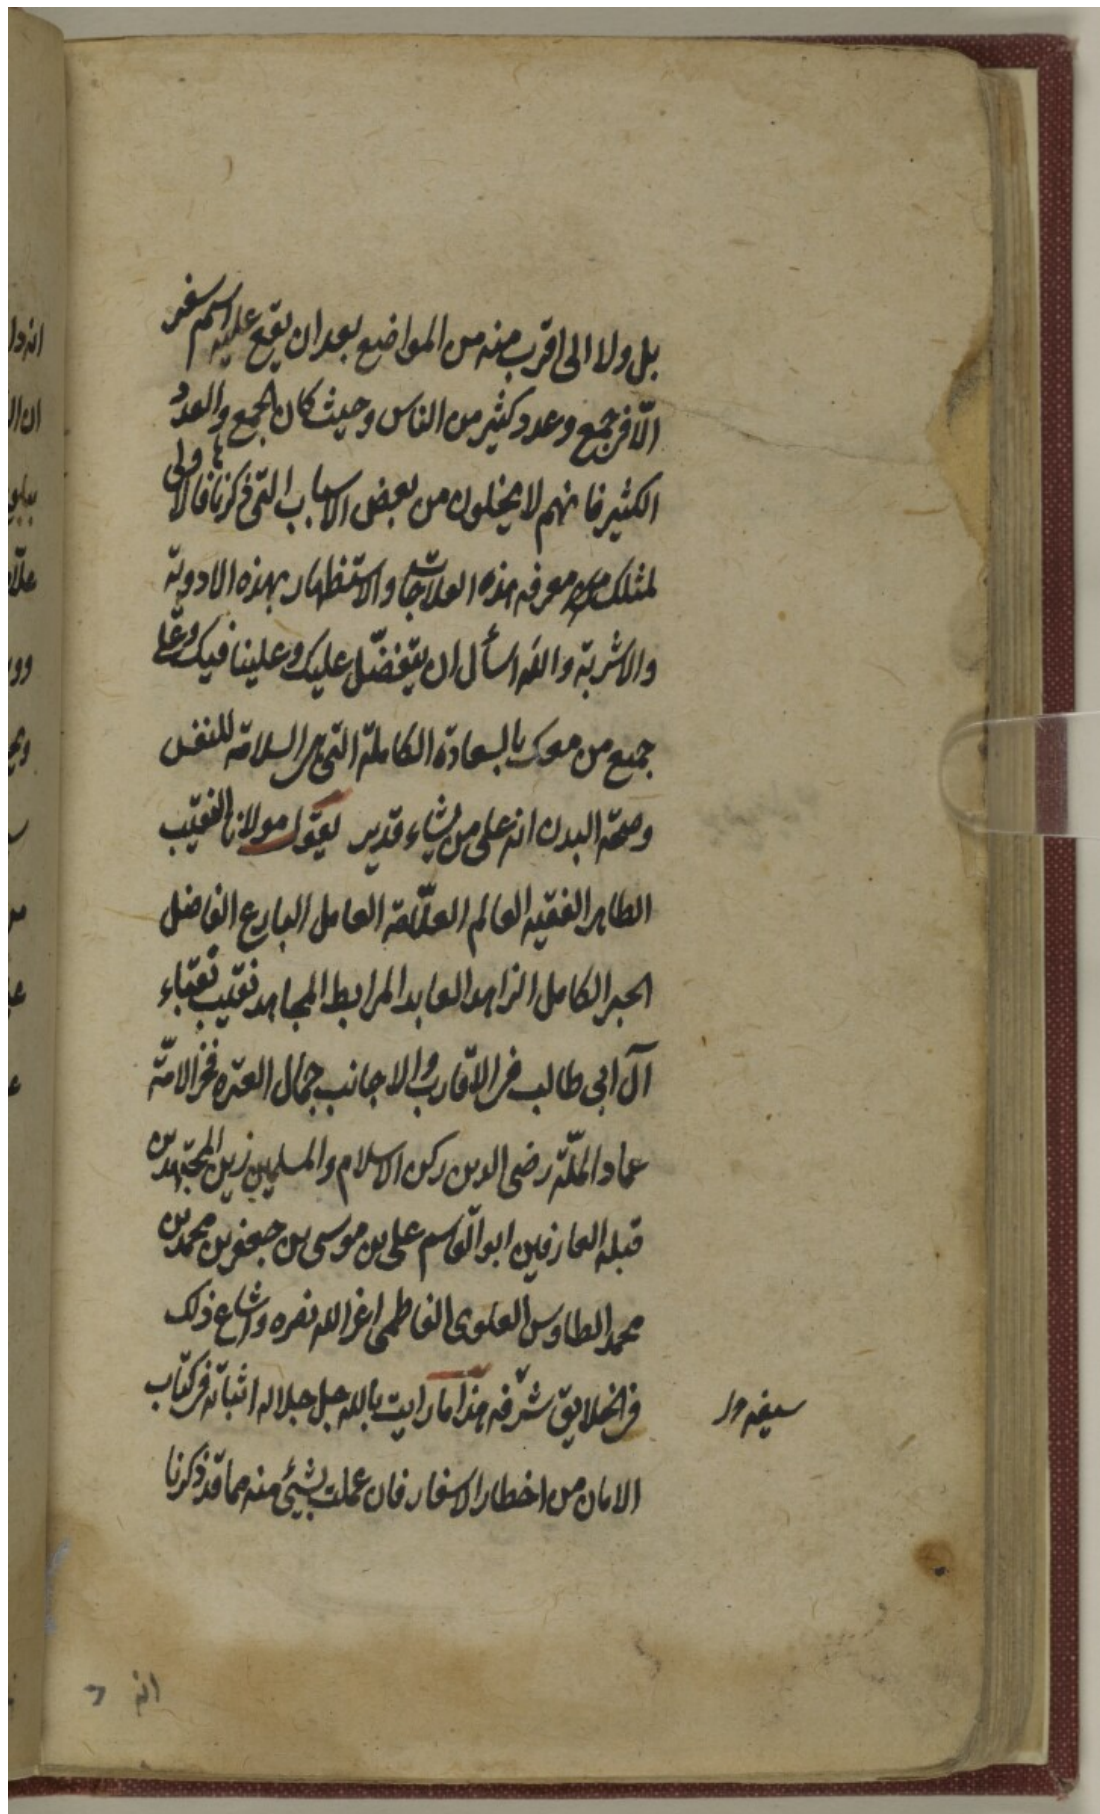 بل ولا الى اقرب منه من المواضع بعد ان يقع عليه اسم سفر
الّا فى جمع وعدد كثير من الناس وحيث كان الجمع والعدد
الكثير فانهم لا يخلون من بعض الاسباب التى ذكرناها فالاولى
لمثلك معرفه هذه العلاجات والاستظهار بهذه الادوية
والاشربة والله اسأل ان يتفضّل عليك وعلينا فيك وعلى
جميع من معك بالسعادة الكاملة التى هى السلامة للنفس
وصحّة البدن انه على من يشاء قدير يقول مولانا النقيب
الطاهر الفقيه العالم العلّامة العامل البارع الفاضل
الحبر الكامل الزاهد العابد المرابط المجاهد نقيب نقباء
آل ابى طالب فى الاقارب والاجانب جمال العترة فخر الامّة
عماد الملّة رضى الدين ركن الاسلام والمسلمين زين المجتهدين
قبلة العارفين ابو القاسم على بن موسى بن جعفر بن محمد بن
محمد الطاوس العلوى الفاطمى اعز الله نصره واشاع ذلك
فى الخلايق شرّفه هذا ما رايت بالله جل جلاله اثباته فى كتاب
الامان من اخطار الاسفار فان عملت بشيئ منه مما قد ذكرنا
انه